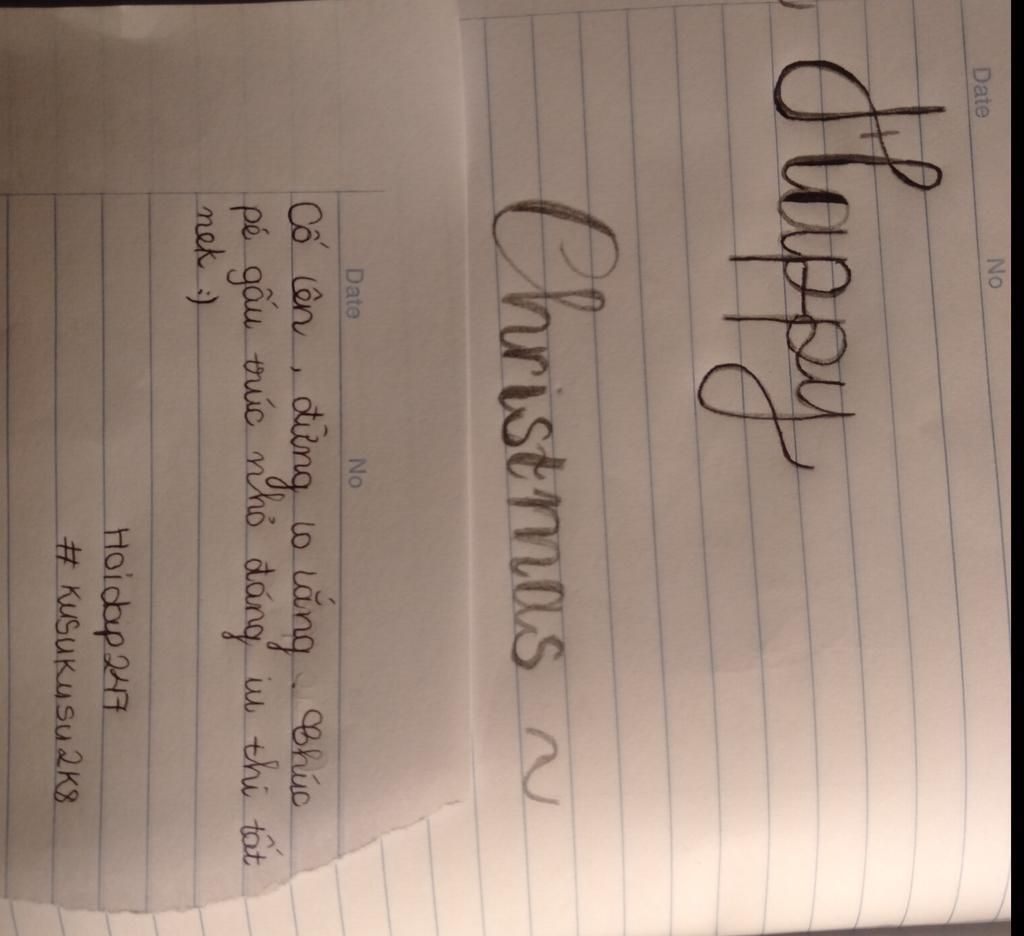 Date No
Happy
Christmas ~
Date No
Cố lên, đừng lo lắng. Chúc
pé gấu trúc nhỏ đáng iu thi tốt
nek :)
Hoidap247
# KUSUKUSU2K8